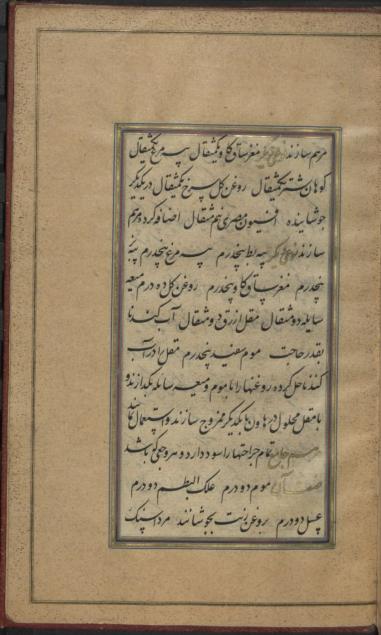 مرهم سازند نوعی دیگر مغز ساق گاو یکمثقال پیه مرغ یکمثقال
کوهان شتر یکمثقال روغن گل سرخ یکمثقال در یکدیگر
جوشانیده افیون مصری نیم مثقال اضافه کرده مرهم
سازند نوعی دیگر پیه بط پنجدرم پیه مرغ پنجدرم پیه
پنجدرم مغز ساق گاو پنجدرم روغن گل ده درم میعه
سایله دو مثقال مقل ازرق دو مثقال آب گندنا
بقدر حاجت موم سفید پنجدرم مقل را در آب
گندنا حل کرده روغنها را با موم و میعه سایله بگدازند و
با مقل محلول در هاون با یکدیگر ممزوج سازند و استعمال نمایند
مرهم تمام جراحتها را سود دارد و هر وجعی که باشد
صفت آن موم دو درم علک البطم دو درم
عسل دو درم روغن زیت بجوشانند مرداسنک